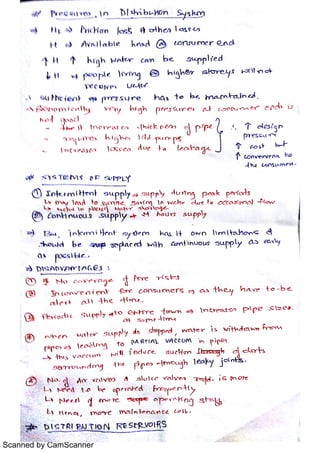 Pressures in Distribution System
H₁ → Friction loss & other losses
H → Available head @ consumer end
↑ H ↑ high water can be supplied
↓ H → people living @ higher storeys will not
receive water
∴ sufficient pressure has to be maintained.
Economically very high pressures at consumer end is
not good
→ It increases thickness of pipe
→ requires higher lift pumps
→ Increases losses due to leakage
∴ ↑ design
pressure
↑ cost but
↑ convenience to
the consumer.
* SYSTEMS OF SUPPLY
① Intermittent supply → supply during peak periods
↳ may lead to saving in water due to occasional flow
↳ useful in places water shortage.
② Continuous supply → 24 hours supply
→ But, intermittent system has it own limitations &
should be replaced with continuous supply as early
as possible.
→ DISADVANTAGES :
① No coverage of fire risks
② Inconvenient for consumers as they have to be
alert all the time.
③ Periodic supply to entire town → Increases pipe sizes.
at same time
④ when water supply is stopped, water is withdrawn from
pipes leading to PARTIAL VACCUM in pipes
→ this vaccum will induce suction of dirts
surrounding the pipes through leaky joints.
⑤ No. of Air valves & sluice valves reqd. is more
↳ Need to be operated frequently
↳ Need of more operating staff
↳ Hence, more maintenance cost.
* DISTRIBUTION RESERVOIRS
Scanned by CamScanner